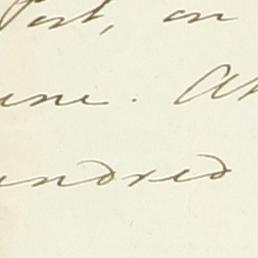 Post, on
une. A
undred